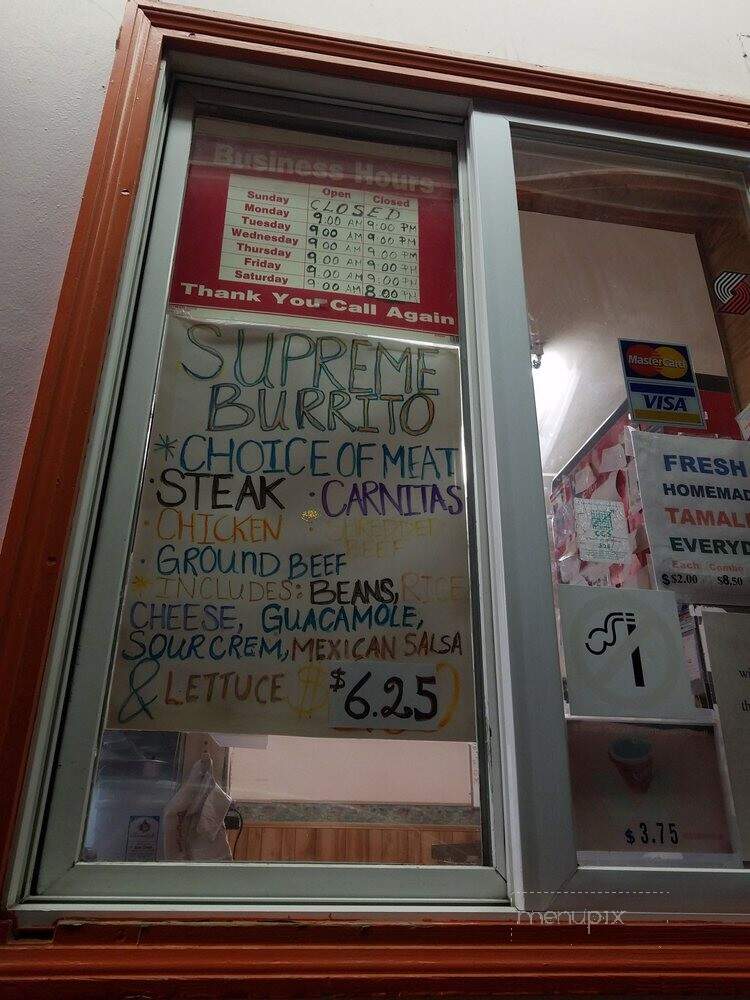 Business Hours
Open Closed
Sunday CLOSED
Monday 9:00 AM 9:00 PM
Tuesday 9 00 AM 9 00 PM
Wednesday 9 00 AM 9 00 PM
Thursday 9 00 AM 9 00 PM
Friday 9 00 AM 9 00 PM
Saturday 9 00 AM 8 00 PM
Thank You Call Again
SUPREME
BURRITO
*CHOICE OF MEAT
· STEAK · CARNITAS
· CHICKEN · SHREDDED
BEEF
· GROUND BEEF
* INCLUDES: BEANS, RICE
CHEESE, GUACAMOLE,
SOUR CREM, MEXICAN SALSA
& LETTUCE $ $6.25
MasterCard
VISA
FRESH
HOMEMA
TAMAL
EVERYD
Each Combo
$2.00 $8.50
$3.75
menupix